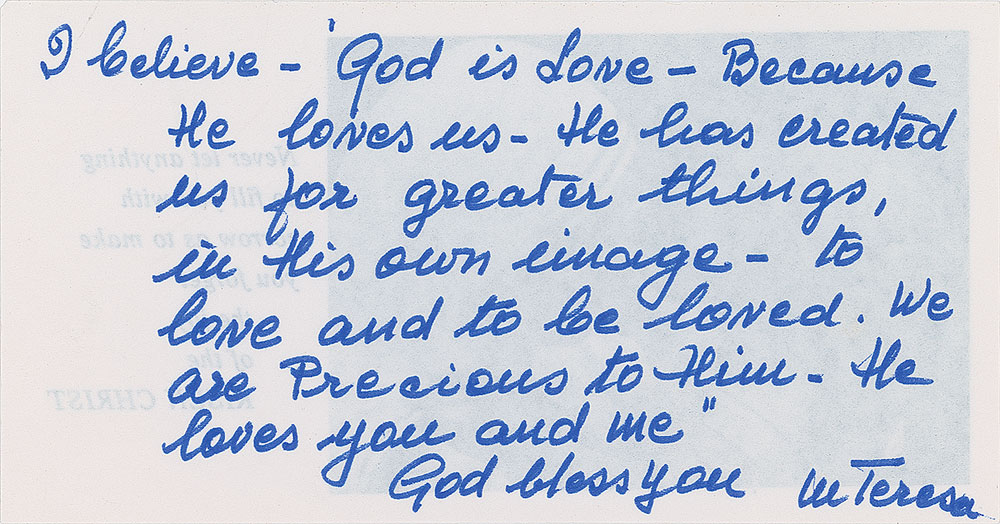 I believe – 'God is Love – Because
He loves us – He has created
us for greater things,
in His own image – to
love and to be loved. We
are Precious to Him – He
loves you and me"
God bless you M Teresa
Never let anything
fill with
sorrow as to make
you forget
of the
RISEN CHRIST